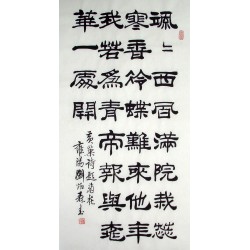 颯〻西風滿院栽蕊
寒香冷蝶難來他年
我若為青帝報與桃
華一處開
黃巢詩題菊花
雍陽劉炳森書